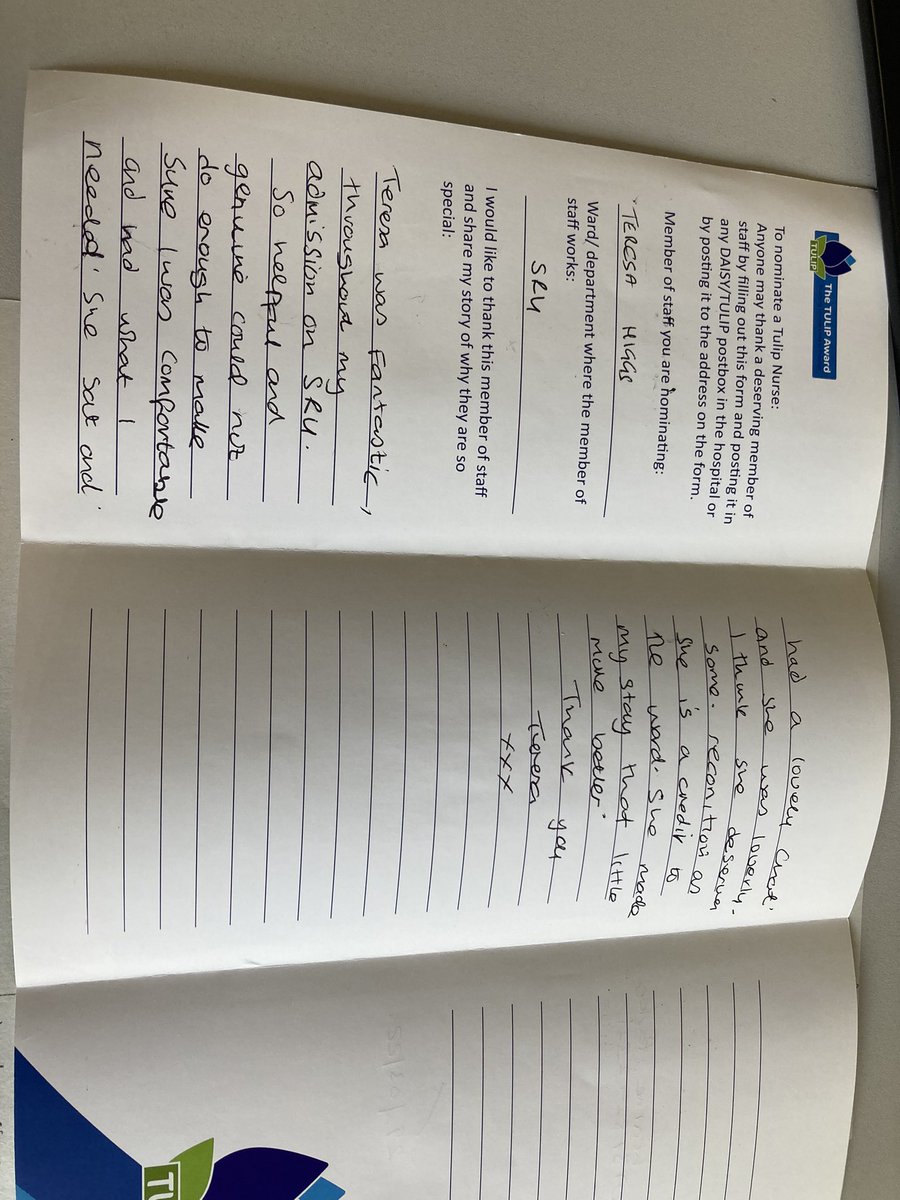 The TULIP Award
TULIP
To nominate a Tulip Nurse:
Anyone may thank a deserving member of
staff by filling out this form and posting it in
any DAISY/TULIP postbox in the hospital or
by posting it to the address on the form.
Member of staff you are nominating:
TERESA HIGGS
Ward/ department where the member of
staff works:
SRU
I would like to thank this member of staff
and share my story of why they are so
special:
Teresa was Fantastic,
throughout my
admission on SRU.
So helpful and
genuine could not
do enough to make
Sure I was comfortable
and had what I
needed. She sat and
had a lovely chat.
and she was lovely.
I think she deserves
some. reconition as
she is a credit to
the ward. She made
my stay that little
more better.
Thank you
Teresa
xxx
TU